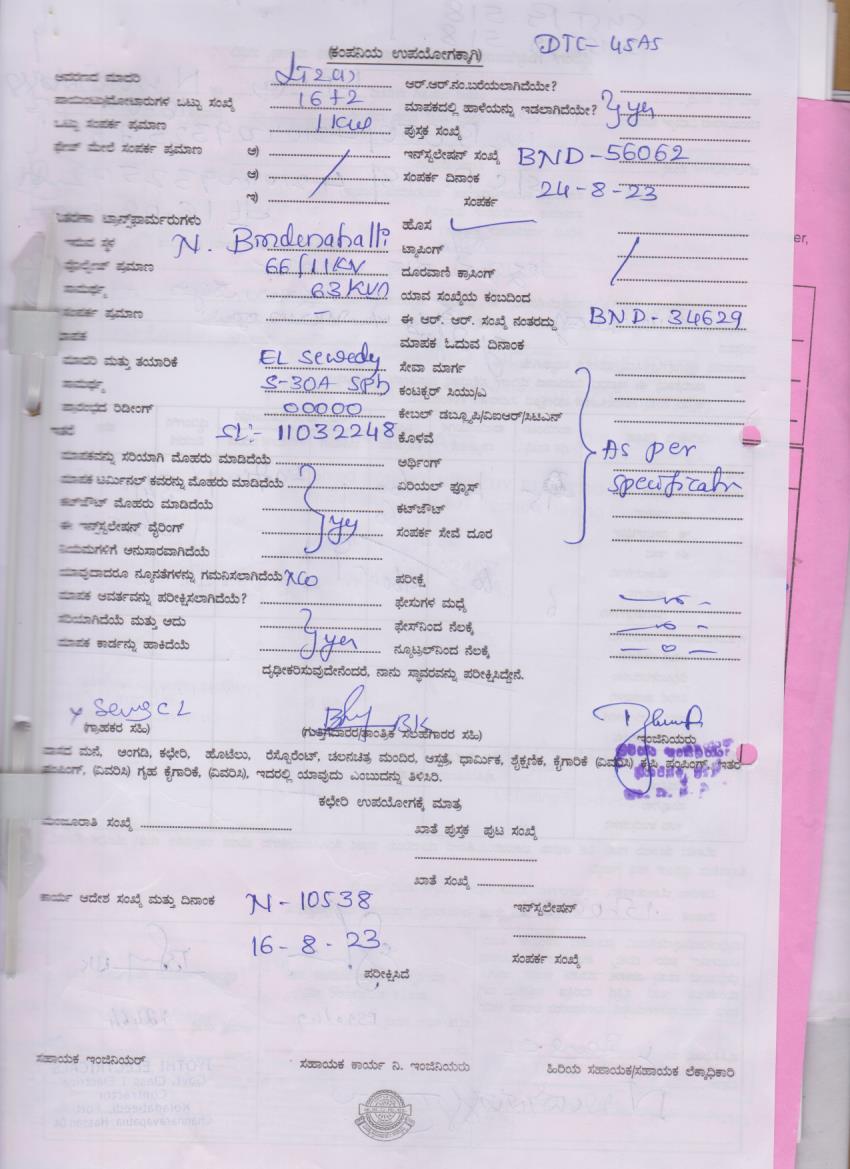 DTC-45AS
(ಕಂಪನಿಯ ಉಪಯೋಗಕ್ಕಾಗಿ)
ಆವರಣದ ಮಾದರಿ ಆರ್.ಆರ್.ನಂ.ಬರೆಯಲಾಗಿದೆಯೇ?
ಪಾಯಿಂಟ್ಸು/ಮೋಟಾರುಗಳ ಒಟ್ಟು ಸಂಖ್ಯೆ 16+2 ಮಾಪಕದಲ್ಲಿ ಹಾಳೆಯನ್ನು ಇಡಲಾಗಿದೆಯೇ? yes
ಒಟ್ಟು ಸಂಪರ್ಕ ಪ್ರಮಾಣ 1 KW ಪುಸ್ತಕ ಸಂಖ್ಯೆ
ಫೇಸ್ ಮೇಲೆ ಸಂಪರ್ಕ ಪ್ರಮಾಣ ಅ) ಇನ್‌ಸ್ಟಲೇಷನ್ ಸಂಖ್ಯೆ BND-56062
ಆ) ಸಂಪರ್ಕ ದಿನಾಂಕ 24-8-23
ಇ) ಸಂಪರ್ಕ
ವಿತರಣಾ ಟ್ರಾನ್ಸ್‌ಫಾರ್ಮರುಗಳು ಹೊಸ
ಇರುವ ಸ್ಥಳ N. Bindenahalli ಟ್ಯಾಪಿಂಗ್
ವೋಲ್ಟೇಜ್ ಪ್ರಮಾಣ 66/11KV ದೂರವಾಣಿ ಕ್ರಾಸಿಂಗ್
ಸಾಮರ್ಥ್ಯ 63 KVA ಯಾವ ಸಂಖ್ಯೆಯ ಕಂಬದಿಂದ
ಸಂಪರ್ಕ ಪ್ರಮಾಣ - ಈ ಆರ್. ಆರ್. ಸಂಖ್ಯೆ ನಂತರದ್ದು BND-34629
ಮಾಪಕ ಮಾಪಕ ಓದುವ ದಿನಾಂಕ
ಮಾದರಿ ಮತ್ತು ತಯಾರಿಕೆ EL Sewedy ಸೇವಾ ಮಾರ್ಗ
ಸಾಮರ್ಥ್ಯ 5-30A SPh ಕಂಟಕ್ಟರ್ ಸಿಯು/ಎ
ಪ್ರಾರಂಭದ ರಿಡೀಂಗ್ 00000 ಕೇಬಲ್ ಡಬ್ಲ್ಯೂಪಿ/ವಿಐಆರ್/ಸಿಟಿಎನ್
ಇತರೆ SL:- 11032248 ಕೊಳವೆ
ಮಾಪಕವನ್ನು ಸರಿಯಾಗಿ ಮೊಹರು ಮಾಡಿದೆಯೆ ಅರ್ಥಿಂಗ್ As per
ಮಾಪಕ ಟರ್ಮಿನಲ್ ಕವರನ್ನು ಮೊಹರು ಮಾಡಿದೆಯೆ ಏರಿಯಲ್ ಫ್ಯೂಸ್ specification
ಕಟ್‌ಔಟ್ ಮೊಹರು ಮಾಡಿದೆಯೆ ಕಟ್‌ಔಟ್
ಈ ಇನ್‌ಸ್ಟಲೇಷನ್ ವೈರಿಂಗ್ yes ಸಂಪರ್ಕ ಸೇವೆ ದೂರ
ನಿಯಮಗಳಿಗೆ ಅನುಸಾರವಾಗಿದೆಯೆ
ಯಾವುದಾದರೂ ನ್ಯೂನತೆಗಳನ್ನು ಗಮನಿಸಲಾಗಿದೆಯೆ NO ಪರೀಕ್ಷೆ
ಮಾಪಕ ಆವರ್ತವನ್ನು ಪರೀಕ್ಷಿಸಲಾಗಿದೆಯೆ? ಫೇಸುಗಳ ಮಧ್ಯೆ
ಸರಿಯಾಗಿದೆಯೆ ಮತ್ತು ಅದು yes ಫೇಸ್‌ನಿಂದ ನೆಲಕ್ಕೆ
ಮಾಪಕ ಕಾರ್ಡನ್ನು ಹಾಕಿದೆಯೆ ನ್ಯೂಟ್ರಲ್‌ನಿಂದ ನೆಲಕ್ಕೆ - 0 -
ದೃಢೀಕರಿಸುವುದೇನೆಂದರೆ, ನಾನು ಸ್ಥಾವರವನ್ನು ಪರೀಕ್ಷಿಸಿದ್ದೇನೆ.
BK
(ಗ್ರಾಹಕರ ಸಹಿ) (ಗುತ್ತಿಗೆದಾರರ/ತಾಂತ್ರಿಕ ಸಲಹೆಗಾರರ ಸಹಿ) ಇಂಜಿನಿಯರು
ವಾಸದ ಮನೆ, ಅಂಗಡಿ, ಕಛೇರಿ, ಹೊಟೆಲು, ರೆಸ್ಟೋರೆಂಟ್, ಚಲನಚಿತ್ರ ಮಂದಿರ, ಆಸ್ಪತ್ರೆ, ಧಾರ್ಮಿಕ, ಶೈಕ್ಷಣಿಕ, ಕೈಗಾರಿಕೆ (ವಿವರಿಸಿ) ಕೃಷಿ ಪಂಪಿಂಗ್, ಇತರ
ಪಂಪಿಂಗ್, (ವಿವರಿಸಿ) ಗೃಹ ಕೈಗಾರಿಕೆ, (ವಿವರಿಸಿ), ಇದರಲ್ಲಿ ಯಾವುದು ಎಂಬುದನ್ನು ತಿಳಿಸಿರಿ.
ಕಛೇರಿ ಉಪಯೋಗಕ್ಕೆ ಮಾತ್ರ
ಮಂಜೂರಾತಿ ಸಂಖ್ಯೆ ಖಾತೆ ಪುಸ್ತಕ ಪುಟ ಸಂಖ್ಯೆ
ಖಾತೆ ಸಂಖ್ಯೆ
ಕಾರ್ಯ ಆದೇಶ ಸಂಖ್ಯೆ ಮತ್ತು ದಿನಾಂಕ N-10538 ಇನ್‌ಸ್ಟಲೇಷನ್
16-8-23
ಸಂಪರ್ಕ ಸಂಖ್ಯೆ
ಪರೀಕ್ಷಿಸಿದೆ
ಸಹಾಯಕ ಇಂಜಿನಿಯರ್ ಸಹಾಯಕ ಕಾರ್ಯ ನಿ. ಇಂಜಿನಿಯರು ಹಿರಿಯ ಸಹಾಯಕ/ಸಹಾಯಕ ಲೆಕ್ಕಾಧಿಕಾರಿ